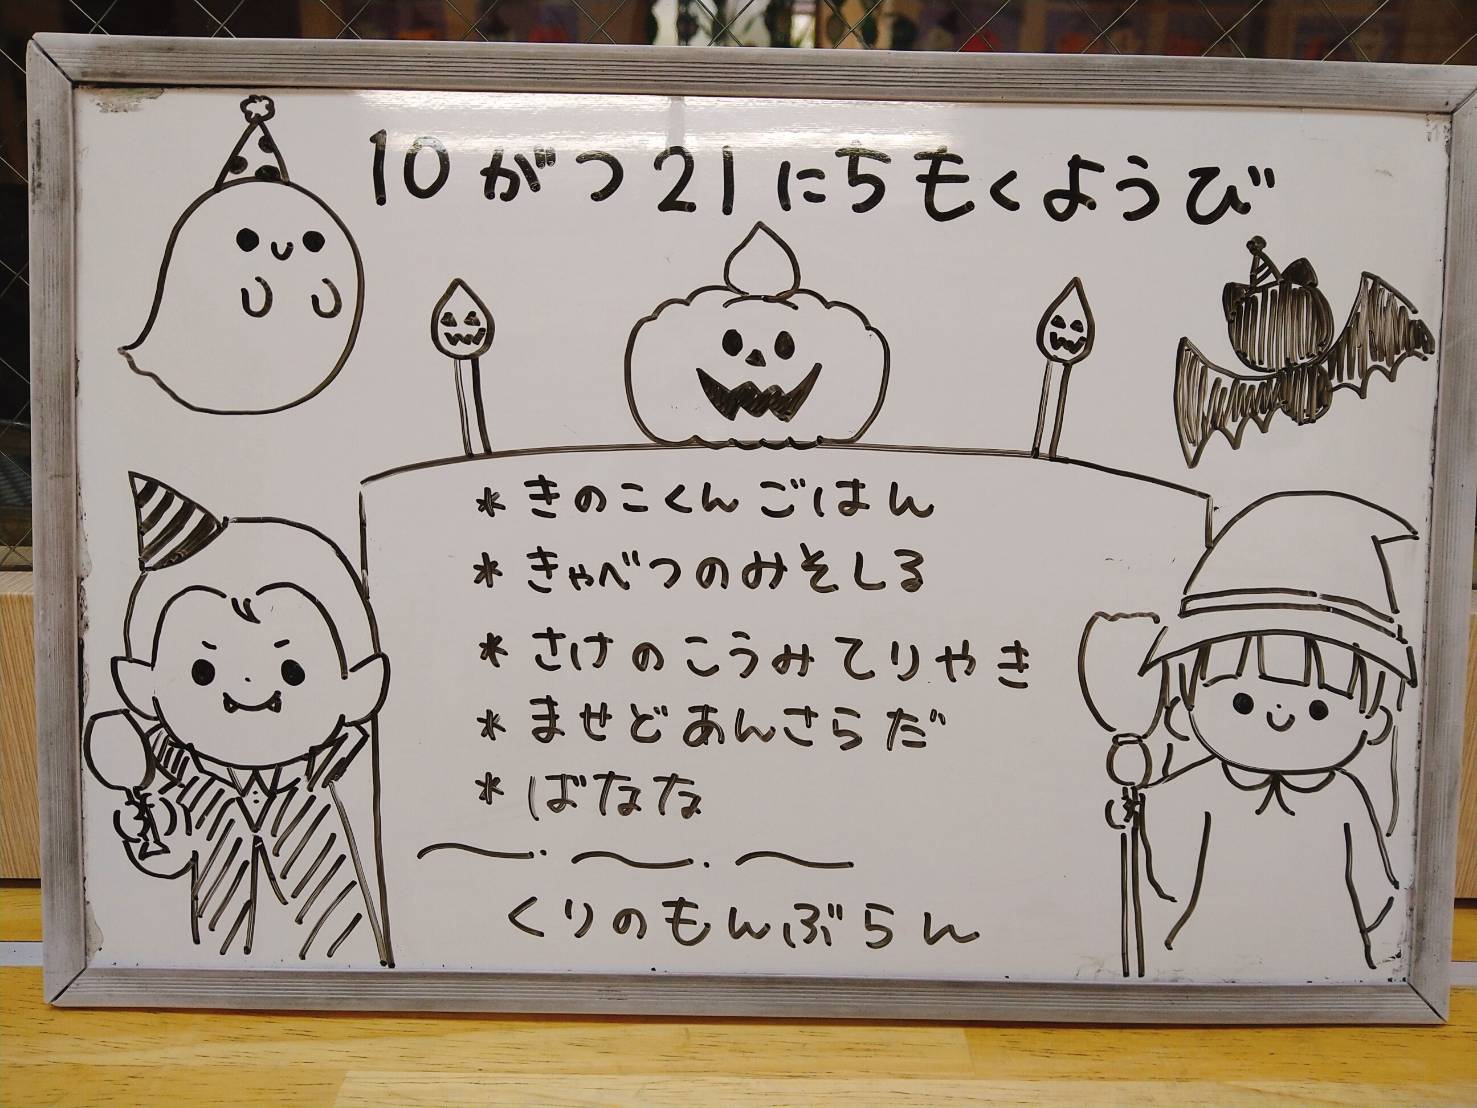 10がつ21にちもくようび
*きのこくんごはん
*きゃべつのみそしる
*さけのこうみてりやき
*ませどあんさらだ
*ばなな
くりのもんぶらん